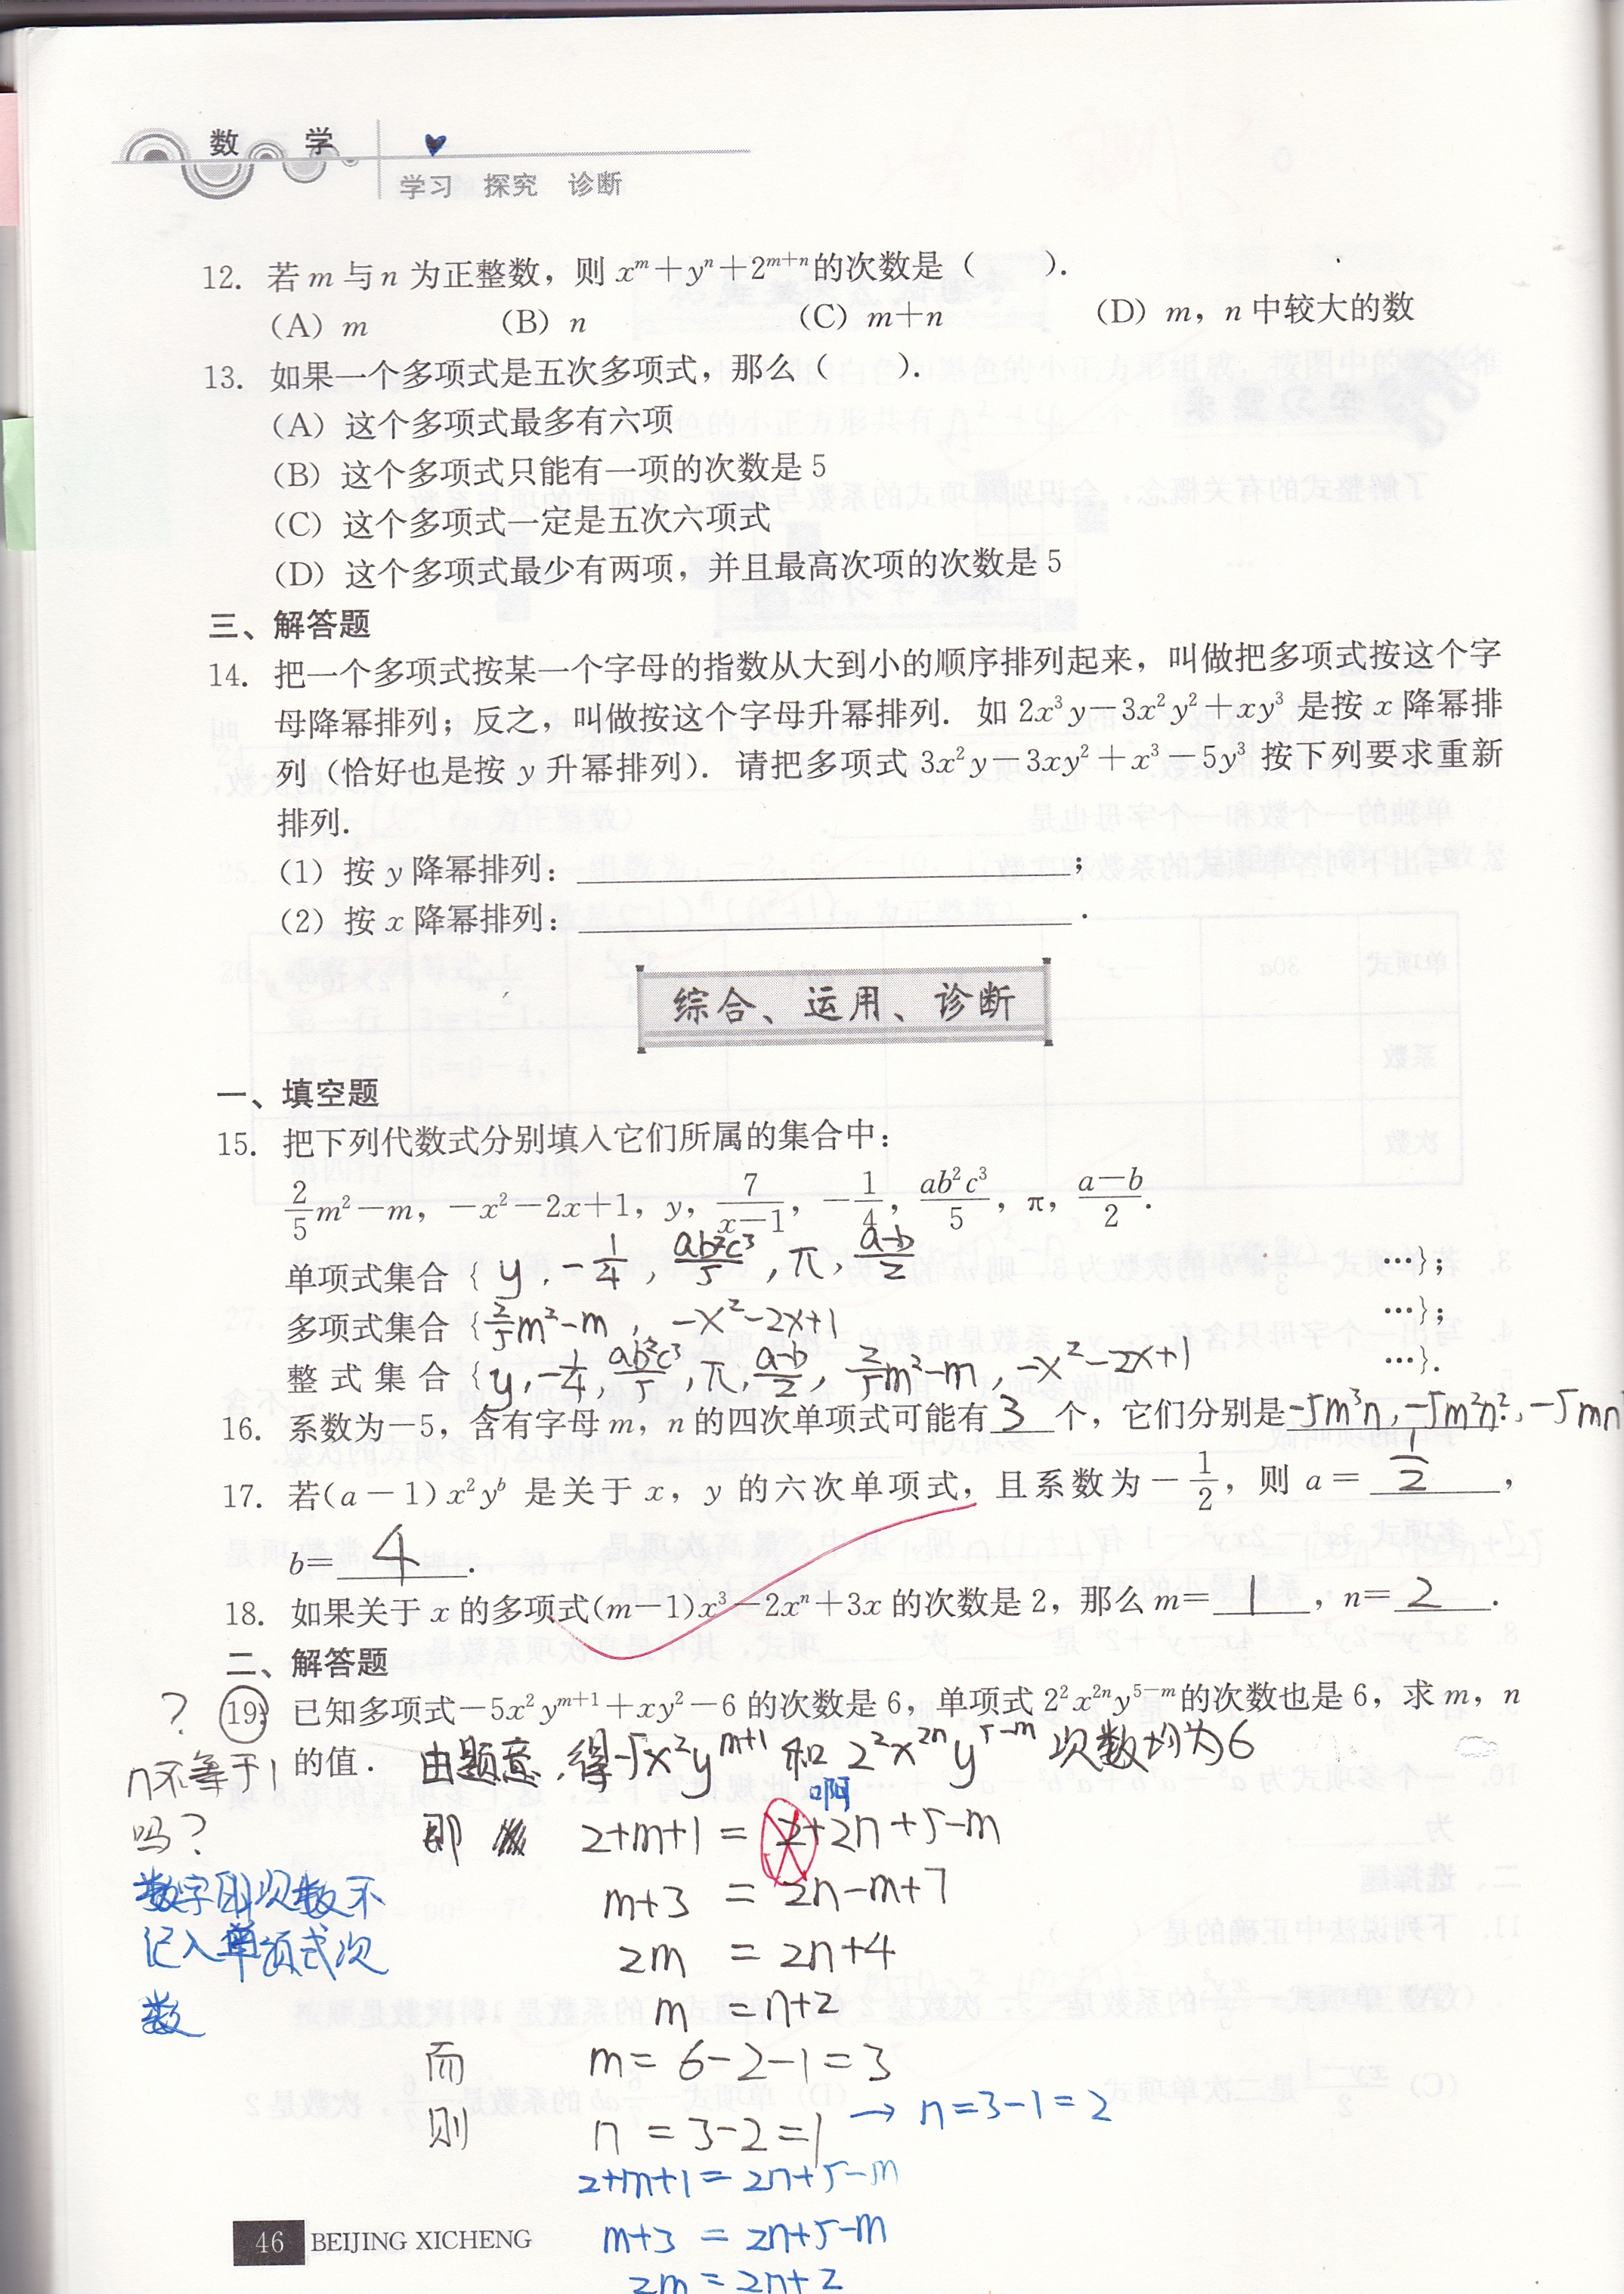 数 学
学习 探究 诊断
12. 若 m 与 n 为正整数，则 x^m＋y^n＋2^{m＋n} 的次数是（ ）．
（A）m （B）n （C）m＋n （D）m，n 中较大的数
13. 如果一个多项式是五次多项式，那么（ ）．
（A）这个多项式最多有六项
（B）这个多项式只能有一项的次数是 5
（C）这个多项式一定是五次六项式
（D）这个多项式最少有两项，并且最高次项的次数是 5
三、解答题
14. 把一个多项式按某一个字母的指数从大到小的顺序排列起来，叫做把多项式按这个字
母降幂排列；反之，叫做按这个字母升幂排列．如 2x³y－3x²y²＋xy³ 是按 x 降幂排
列（恰好也是按 y 升幂排列）．请把多项式 3x²y－3xy²＋x³－5y³ 按下列要求重新
排列．
（1）按 y 降幂排列：＿＿＿＿＿＿＿＿；
（2）按 x 降幂排列：＿＿＿＿＿＿＿＿．
综合、运用、诊断
一、填空题
15. 把下列代数式分别填入它们所属的集合中：
2/5 m²－m，－x²－2x＋1，y，7/(x－1)，－1/4，ab²c³/5，π，(a－b)/2．
单项式集合｛y，-1/4，ab²c³/5，π，(a-b)/2 …｝；
多项式集合｛2/5 m²-m，-x²-2x+1 …｝；
整式集合｛y，-1/4，ab²c³/5，π，(a-b)/2，2/5 m²-m，-x²-2x+1 …｝．
16. 系数为－5，含有字母 m，n 的四次单项式可能有 3 个，它们分别是 -5m³n，-5m²n²，-5mn
17. 若(a－1)x²y^b 是关于 x，y 的六次单项式，且系数为－1/2，则 a＝ 1/2，
b＝ 4．
18. 如果关于 x 的多项式(m－1)x³－2x^n＋3x 的次数是 2，那么 m＝ 1，n＝ 2．
二、解答题
？ 19. 已知多项式－5x²y^{m＋1}＋xy²－6 的次数是 6，单项式 2²x^{2n}y^{5－m} 的次数也是 6，求 m，n
的值． 由题意，得-5x²y^{m+1} 和 2²x^{2n}y^{5-m} 次数均为6
n不等于1
吗？
啊
即 2+m+1 = 2+2n+5-m
数字的次数不
记入单项式次
数
m+3 = 2n-m+7
2m = 2n+4
m = n+2
而 m = 6-2-1=3
则 n = 3-2=1 → n=3-1=2
2+m+1 = 2n+5-m
m+3 = 2n+5-m
2m = 2n+2
46 BEIJING XICHENG